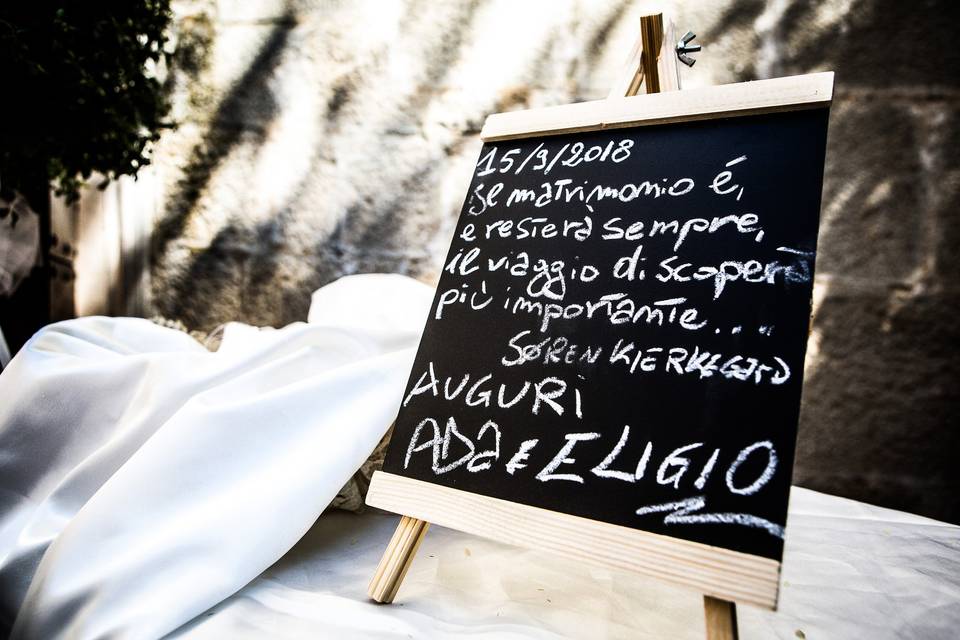 15/9/2018
il matrimonio é,
e resterà sempre,
il viaggio di scoperta
più importante....
SØREN KIERKEGARD
AUGURI
ADA E ELIGIO